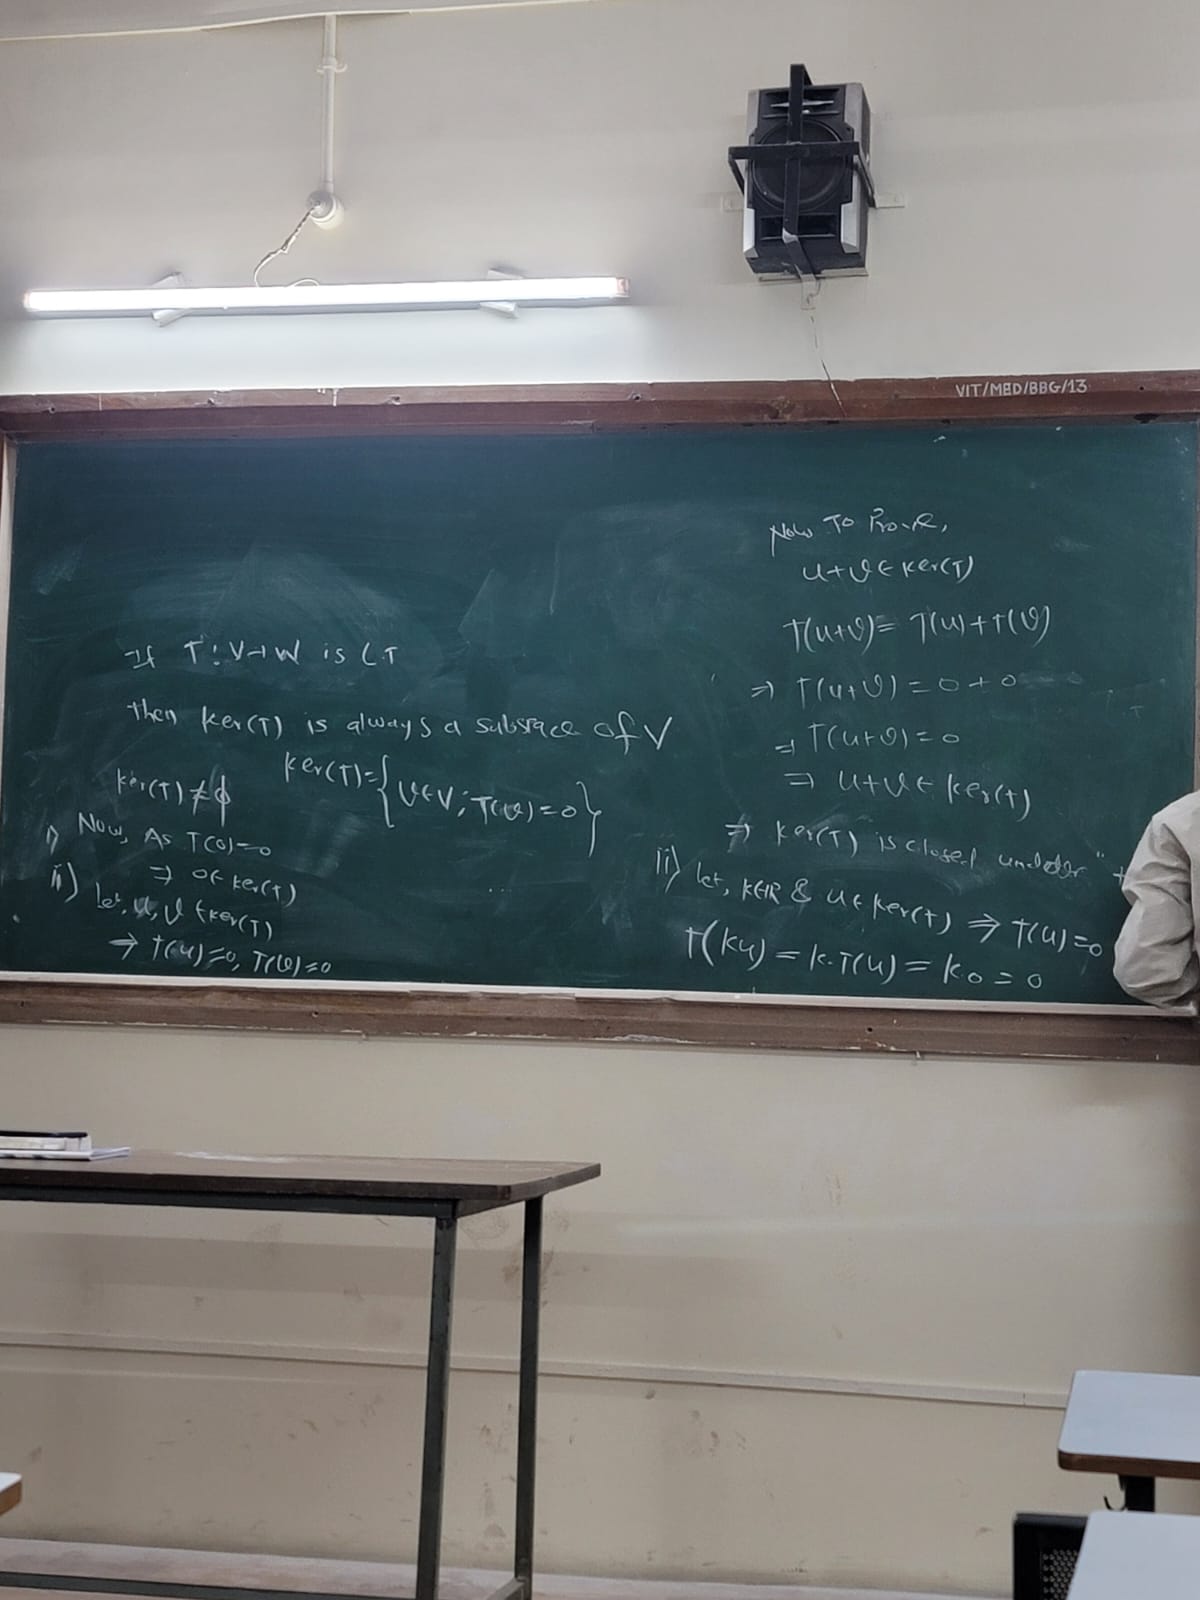 VIT/MED/BBG/13
If T: V→W is L.T
then ker(T) is always a subspace of V
ker(T)={v∈V; T(v)=0}
ker(T)≠ϕ
i) Now, As T(0)=0
⇒ 0∈ker(T)
ii) let, u, v ∈ ker(T)
⇒ T(u)=0, T(v)=0
Now To Prove,
u+v∈ker(T)
T(u+v)= T(u)+T(v)
⇒ T(u+v)=0+0
⇒ T(u+v)=0
⇒ u+v∈ker(T)
⇒ ker(T) is closed under "+
iii) let, k∈R & u∈ker(T) ⇒ T(u)=0
T(ku)=k.T(u)=k.0=0